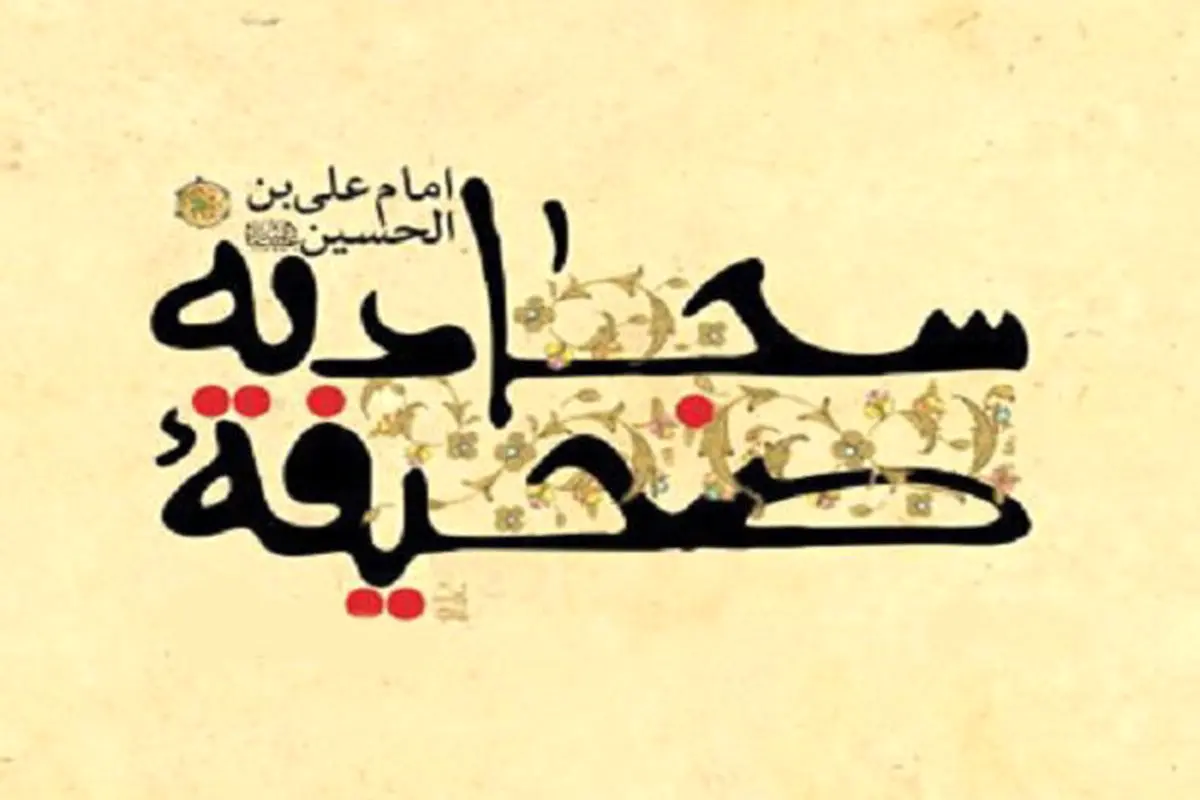 امام علی بن
الحسین
سجادیه
صحیفهٔ